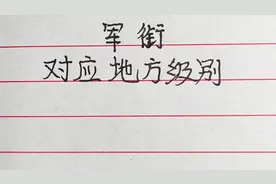 军衔
对应地方级别